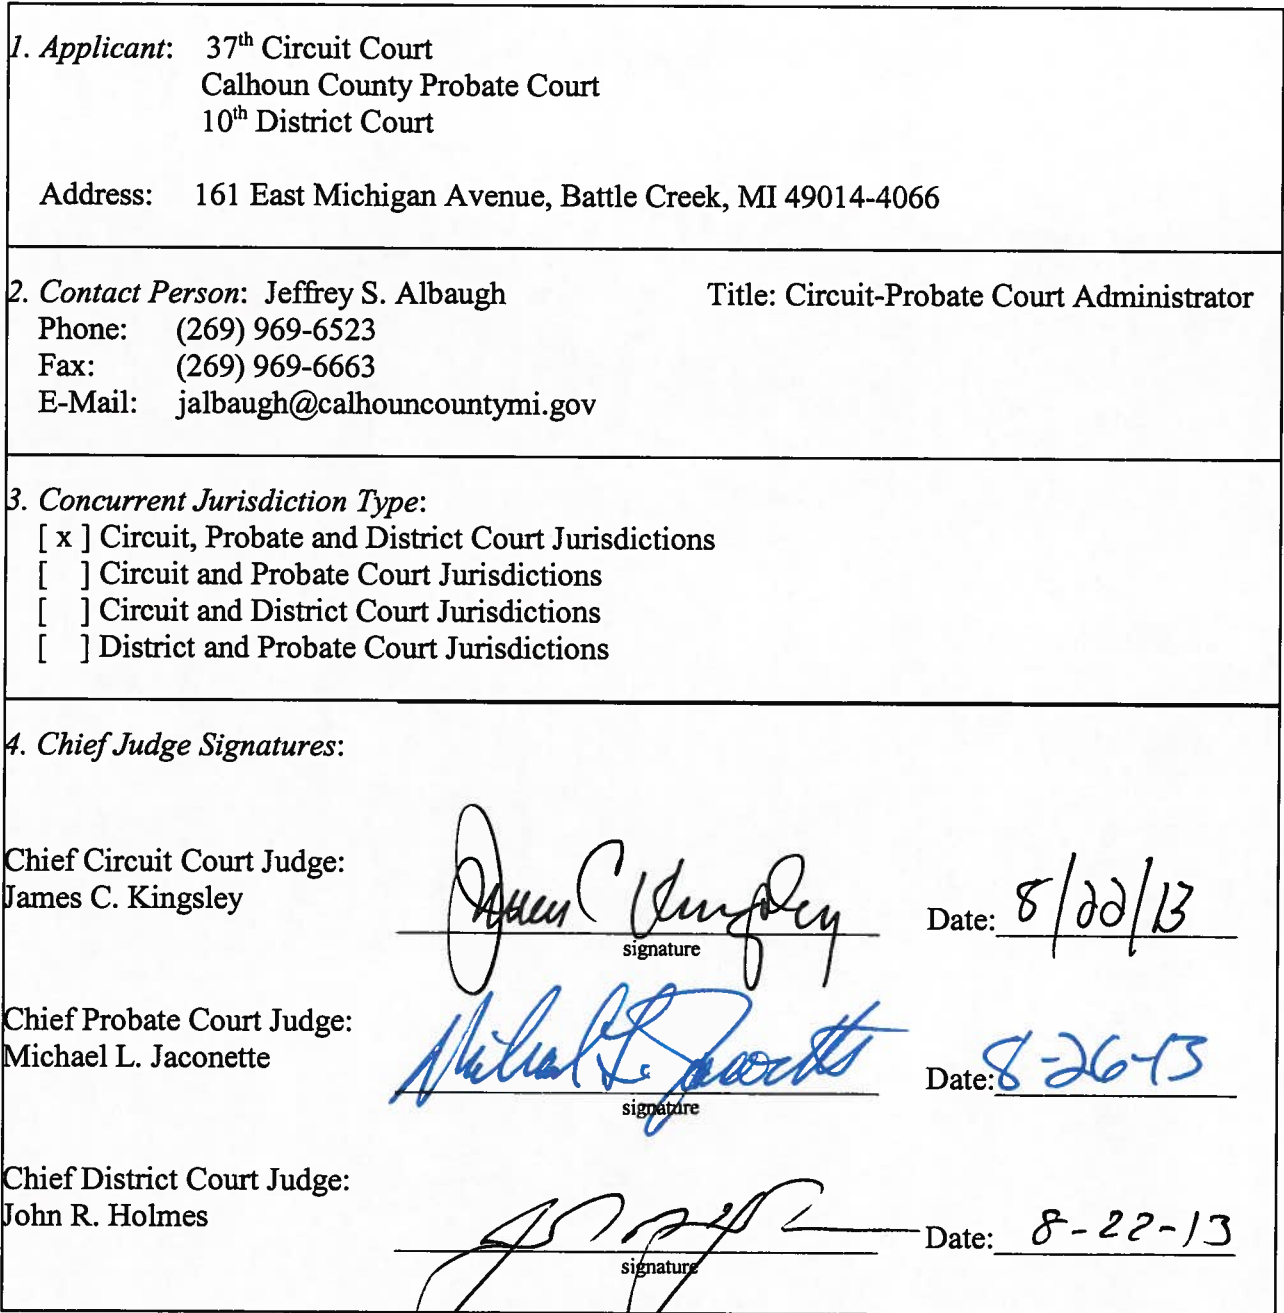 1. Applicant: 37th Circuit Court
Calhoun County Probate Court
10th District Court
Address: 161 East Michigan Avenue, Battle Creek, MI 49014-4066
2. Contact Person: Jeffrey S. Albaugh Title: Circuit-Probate Court Administrator
Phone: (269) 969-6523
Fax: (269) 969-6663
E-Mail: jalbaugh@calhouncountymi.gov
3. Concurrent Jurisdiction Type:
[ x ] Circuit, Probate and District Court Jurisdictions
[ ] Circuit and Probate Court Jurisdictions
[ ] Circuit and District Court Jurisdictions
[ ] District and Probate Court Jurisdictions
4. Chief Judge Signatures:
Chief Circuit Court Judge:
James C. Kingsley James C Kingsley Date: 8/22/13
signature
Chief Probate Court Judge:
Michael L. Jaconette Michael L. Jaconette Date: 8-26-13
signature
Chief District Court Judge:
John R. Holmes Date: 8-22-13
signature